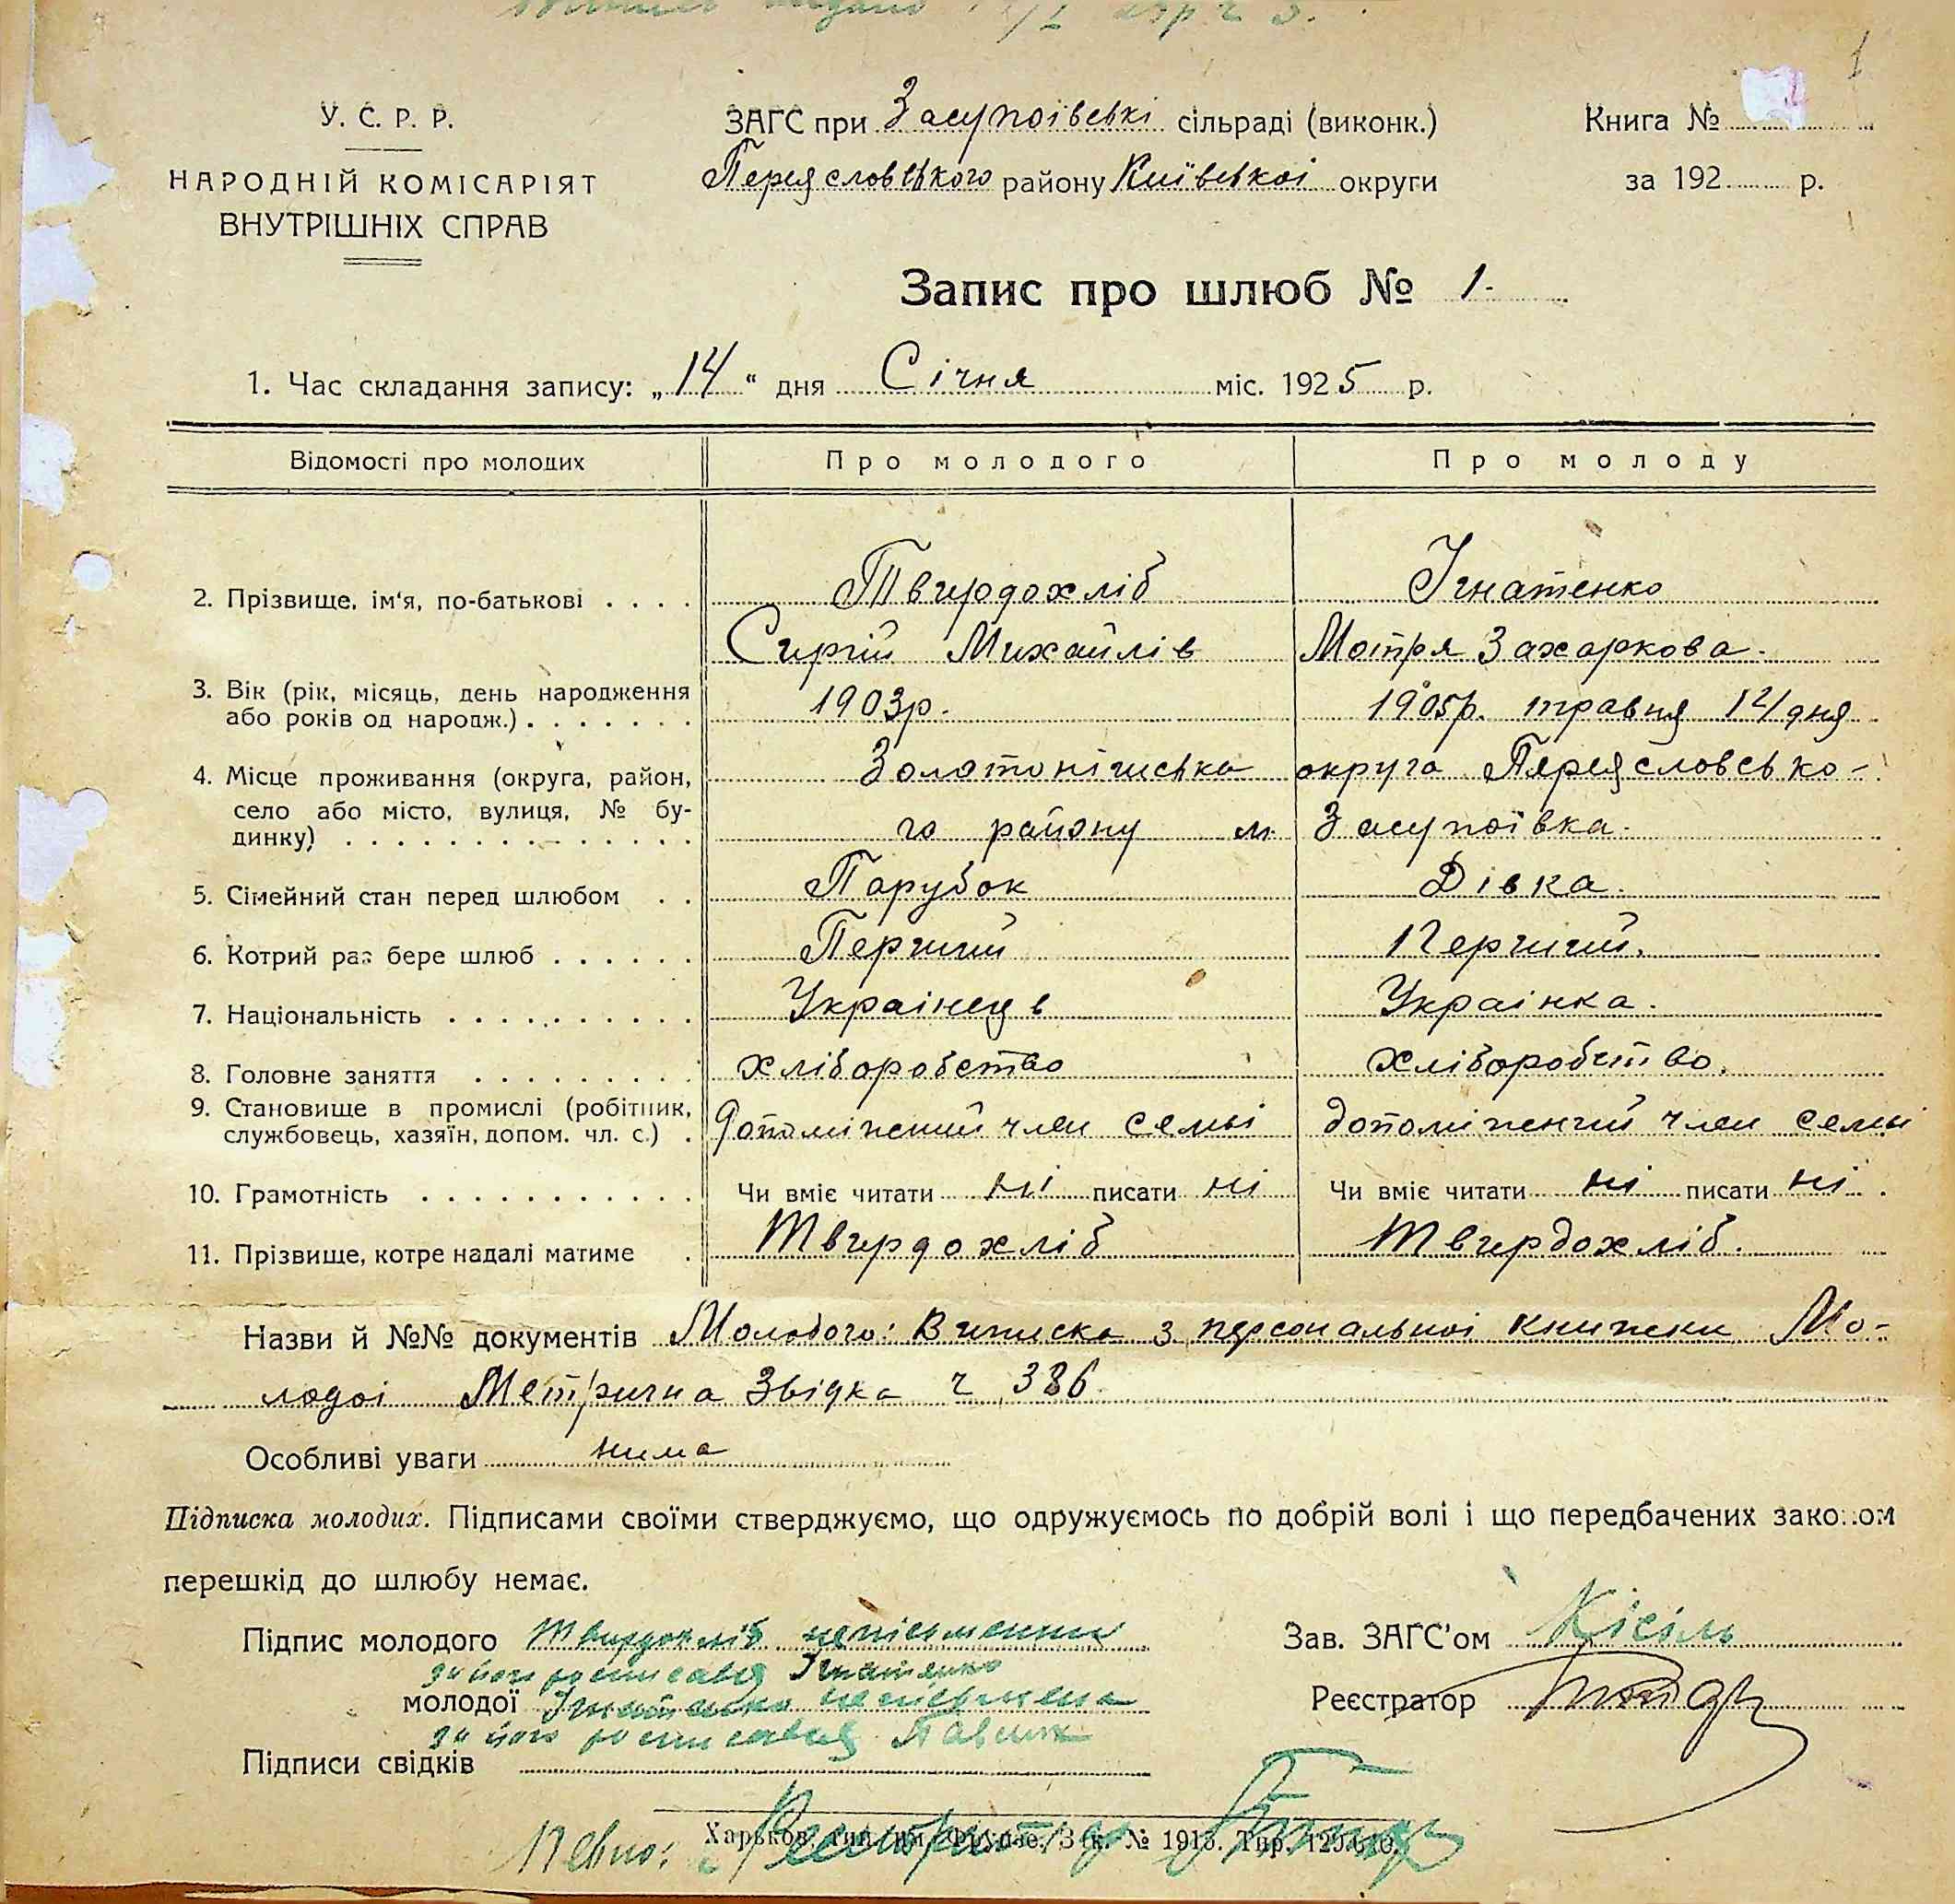 У. С. Р. Р.
НАРОДНІЙ КОМІСАРІЯТ
ВНУТРІШНІХ СПРАВ
ЗАГС при Засупоївські сільраді (виконк.)
Переяславського району Київської округи
Книга №
за 192 р.
1
Запис про шлюб № 1.
1. Час складання запису: „14“ дня Січня міс. 1925 р.
Відомості про молодих
Про молодого
Про молоду
2. Прізвище, ім'я, по-батькові . . . .
Твирдохліб
Сиргій Михайлів
Ігнатенко
Мотря Захаркова.
3. Вік (рік, місяць, день народження
або років од народж.) . . . . . . .
1903р.
1905р. травня 14 дня
4. Місце проживання (округа, район,
село або місто, вулиця, № бу-
динку) . . . . . . . . . . . . . .
Золотонішська округа Переясловсько-
го району м. Засупоївка.
5. Сімейний стан перед шлюбом . .
Парубок
Дівка.
6. Котрий раз бере шлюб . . . . . .
Перший
Перший.
7. Національність . . . . . . . . . .
Українець
Українка.
8. Головне заняття . . . . . . . . .
хліборобство
хліборобство.
9. Становище в промислі (робітник,
службовець, хазяїн, допом. чл. с.) .
допоміжний член семьі
допоміжний член семьі
10. Грамотність . . . . . . . . . . . .
Чи вміє читати ні писати ні
Чи вміє читати ні писати ні .
11. Прізвище, котре надалі матиме .
Твирдохліб
Твирдохліб.
Назви й №№ документів Молодого: Виписка з персональноі книжки Мо-
лодоі Метрична Звідка ч 386.
Особливі уваги нима
Підписка молодих. Підписами своїми стверджуємо, що одружуємось по добрій волі і що передбачених законом
перешкід до шлюбу немає.
Підпис молодого Твирдохліб неписьменний
за його росписався Ігнатенко
молодої Ігнатенко неписьмена
за його росписався Павлик
Підписи свідків
Зав. ЗАГС'ом Кісіль
Реєстратор
Певно: Реєстратор
Харьков, тип. им. Фрунзе, Зак. № 1915. Тир.